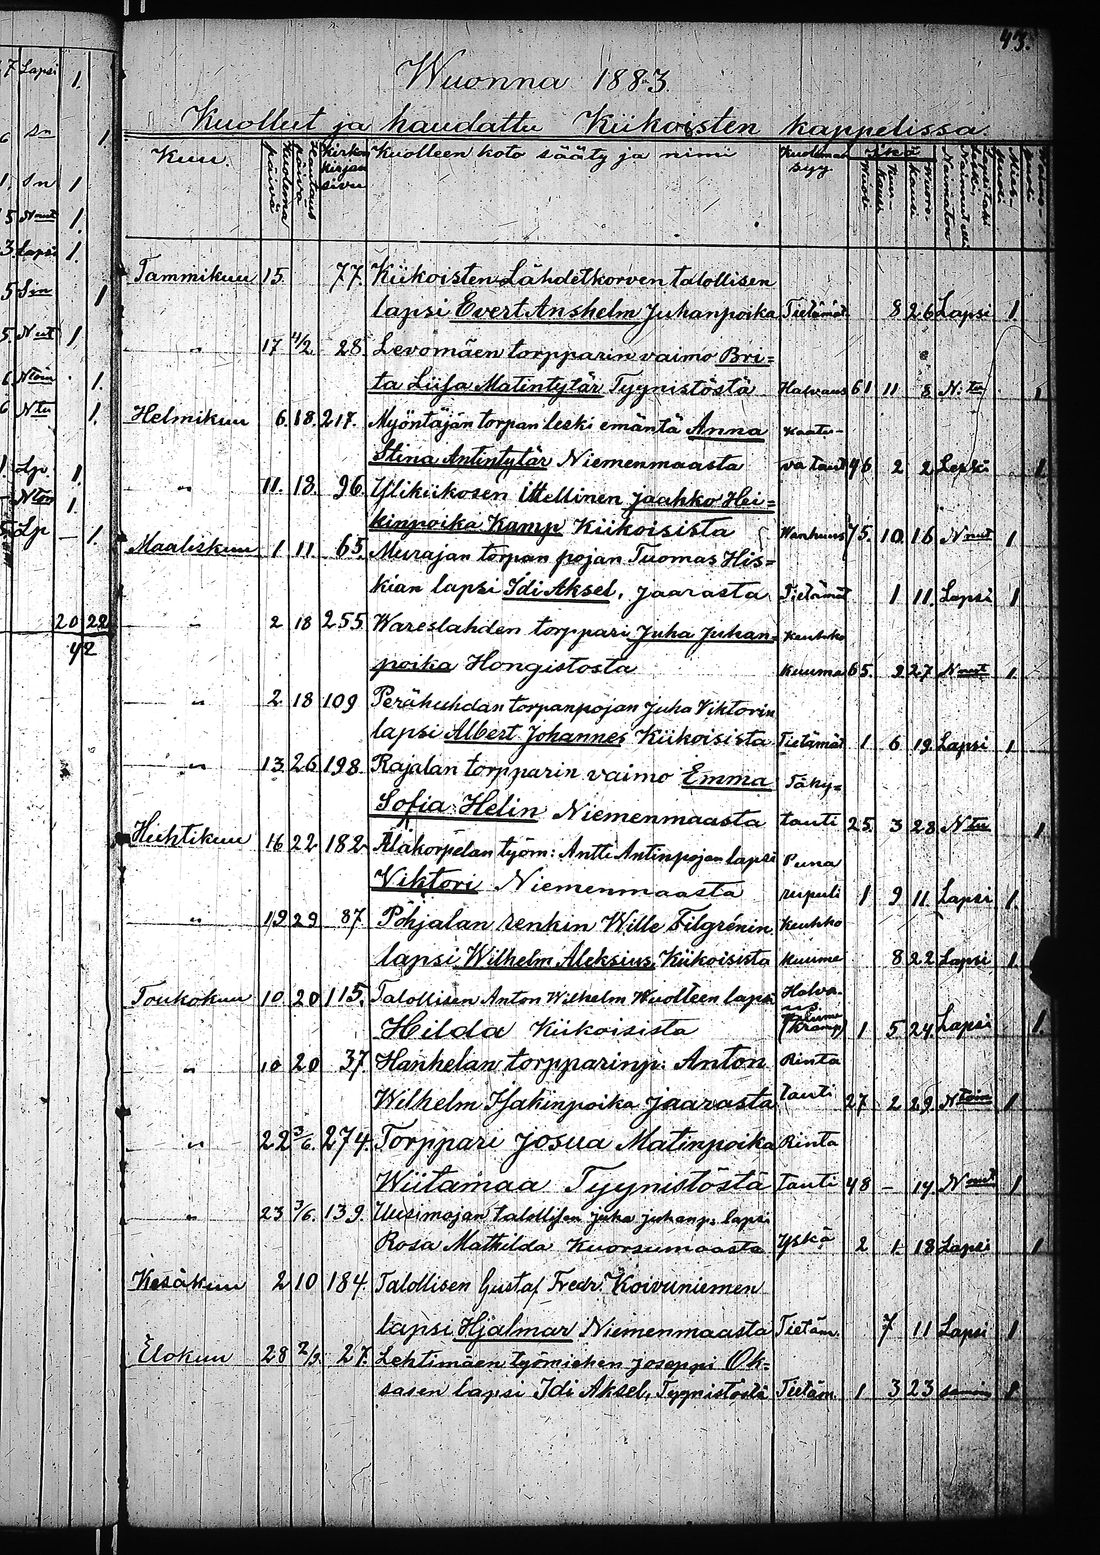 43.
Wuonna 1883.
Kuollut ja haudattu Kiikoisten kappelissa.
Kuu. Kuoleman päivä Hautaus päivä Kirkon kirjan sivu Kuolleen koto sääty ja nimi Kuoleman syy Ikä Wuosi Kuukausi Wuorokausi
Tammikuu 15. 77. Kiikoisten Lähdetkorven talollisen
lapsi Evert Anshelm Juhanpoika Tietämät 8 26 Lapsi 1
" 17 4/2 28. Levomäen torpparin vaimo Bri=
ta Liisa Matintytär Tyynistöstä Halvaus 61 11 8 N:tu 1
Helmikuu 6. 18. 217. Myöntäjän torpan leski emäntä Anna Kaatu-
Stina Antintytär Niemenmaasta va taut 76 2 2 Leski 1
" 11. 18. 96. Ylikiikosen ittellinen Jaakko Hei=
kinpoika Kamp Kiikoisista Wanhuus 75. 10 16 Nnut 1
Maaliskuu 1 11 65. Murajan torpan pojan Tuomas His=
kian lapsi Idi Aksel, Jaarasta Tietämät 1 11. Lapsi 1
" 2 18 255. Wareslahden torppari Juha Juhan= Keuhko
poika Hongistosta Kuuma 65. 9 27 Nnut 1.
" 2 18 109 Perähuhdan torpanpojan Juha Viktorin
lapsi Albert Johannes Kiikoisista Tietämät 1 6 19. Lapsi 1
" 13. 26 198. Rajalan torpparin vaimo Emma Täky-
Sofia Helin Niemenmaasta tauti 25. 3 28 Ntu 1
Huhtikuu 16 22 182. Alakorpelan työm: Antti Antinpojan lapsi Puna
Viktori Niemenmaasta rupuli 1 9 11. Lapsi 1.
" 19 29 87. Pohjalan renkin Wille Filgrénin Keuhko
lapsi Wilhelm Aleksius Kiikoisista Kuume 8 22 Lapsi 1
Toukokuu 10 20 115. Talollisen Anton Wilhelm Wuolteen lapsi Halva-
Hilda Kiikoisista (Kramp) 1 5 24. Lapsi 1
" 10 20 37. Hanhelan torpparinp: Anton Rinta
Wilhelm Isakinpoika Jaarasta tauti 27 2 29 Ntoin 1
" 22 3/6. 274. Torppari Josua Matinpoika Rinta
Wiitamaa Tyynistöstä Tauti 48 - 14. Nnut 1
" 23 3/6. 139. Uusimajan talollisen Juha Juhanp. lapsi
Rosa Mathilda Kuorsumaasta Yskä 2 1 18 Lapsi 1
Kesäkuu 2 10 184. Talollisen Gustaf Fredr. Koivuniemen
lapsi Hjalmar Niemenmaasta Tietäm. 7 11 Lapsi 1
Elokuu 28 2/9. 27. Lehtimäen työmiehen Joseppi Ok=
sasen lapsi Idi Aksel, Tyynistöstä Tietäm 1 3 23 1
7 Lapsi 1.
Nnut 1.
3. Lapsi 1.
Nut 1
Ntoin 1.
Ntu 1.
Lp 1
Ntoin 1.
5. Lp — 1.
20 22
42